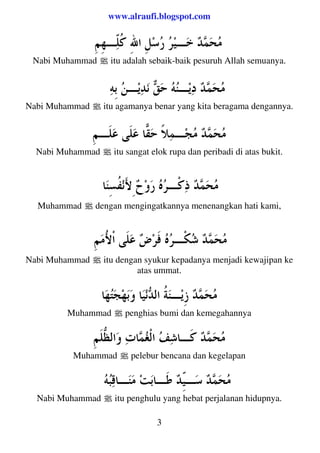 www.alraufi.blogspot.com
مُحَمَّدٌ خَـــيْرُ رُسْلِ اللهِ كُلِّـــهِمِ
Nabi Muhammad ﷺ itu adalah sebaik-baik pesuruh Allah semuanya.
مُحَمَّدٌ دِيْـــنُهُ حَقٌّ نَدِيْـــنُ بِهِ
Nabi Muhammad ﷺ itu agamanya benar yang kita beragama dengannya.
مُحَمَّدٌ مُجْـــمِلاً حَقًّا عَلَى عَلَـــمِ
Nabi Muhammad ﷺ itu sangat elok rupa dan peribadi di atas bukit.
مُحَمَّدٌ ذِكْـــرُهُ رَوْحٌ ِلأَنْفُسِنَا
Muhammad ﷺ dengan mengingatkannya menenangkan hati kami,
مُحَمَّدٌ شُكْـــرُهُ فَرْضٌ عَلَى اْلأُمَمِ
Nabi Muhammad ﷺ itu dengan syukur kepadanya menjadi kewajipan ke
atas ummat.
مُحَمَّدٌ زِيْـــنَةُ الدُّنْيَا وَبَهْجَتُهَا
Muhammad ﷺ penghias bumi dan kemegahannya
مُحَمَّدٌ كَـــاشِفُ الْغُمَّاتِ وَالظُّلَمِ
Muhammad ﷺ pelebur bencana dan kegelapan
مُحَمَّدٌ سَـــيِّدٌ طَـــابَتْ مَنَـــاقِبُهُ
Nabi Muhammad ﷺ itu penghulu yang hebat perjalanan hidupnya.
3